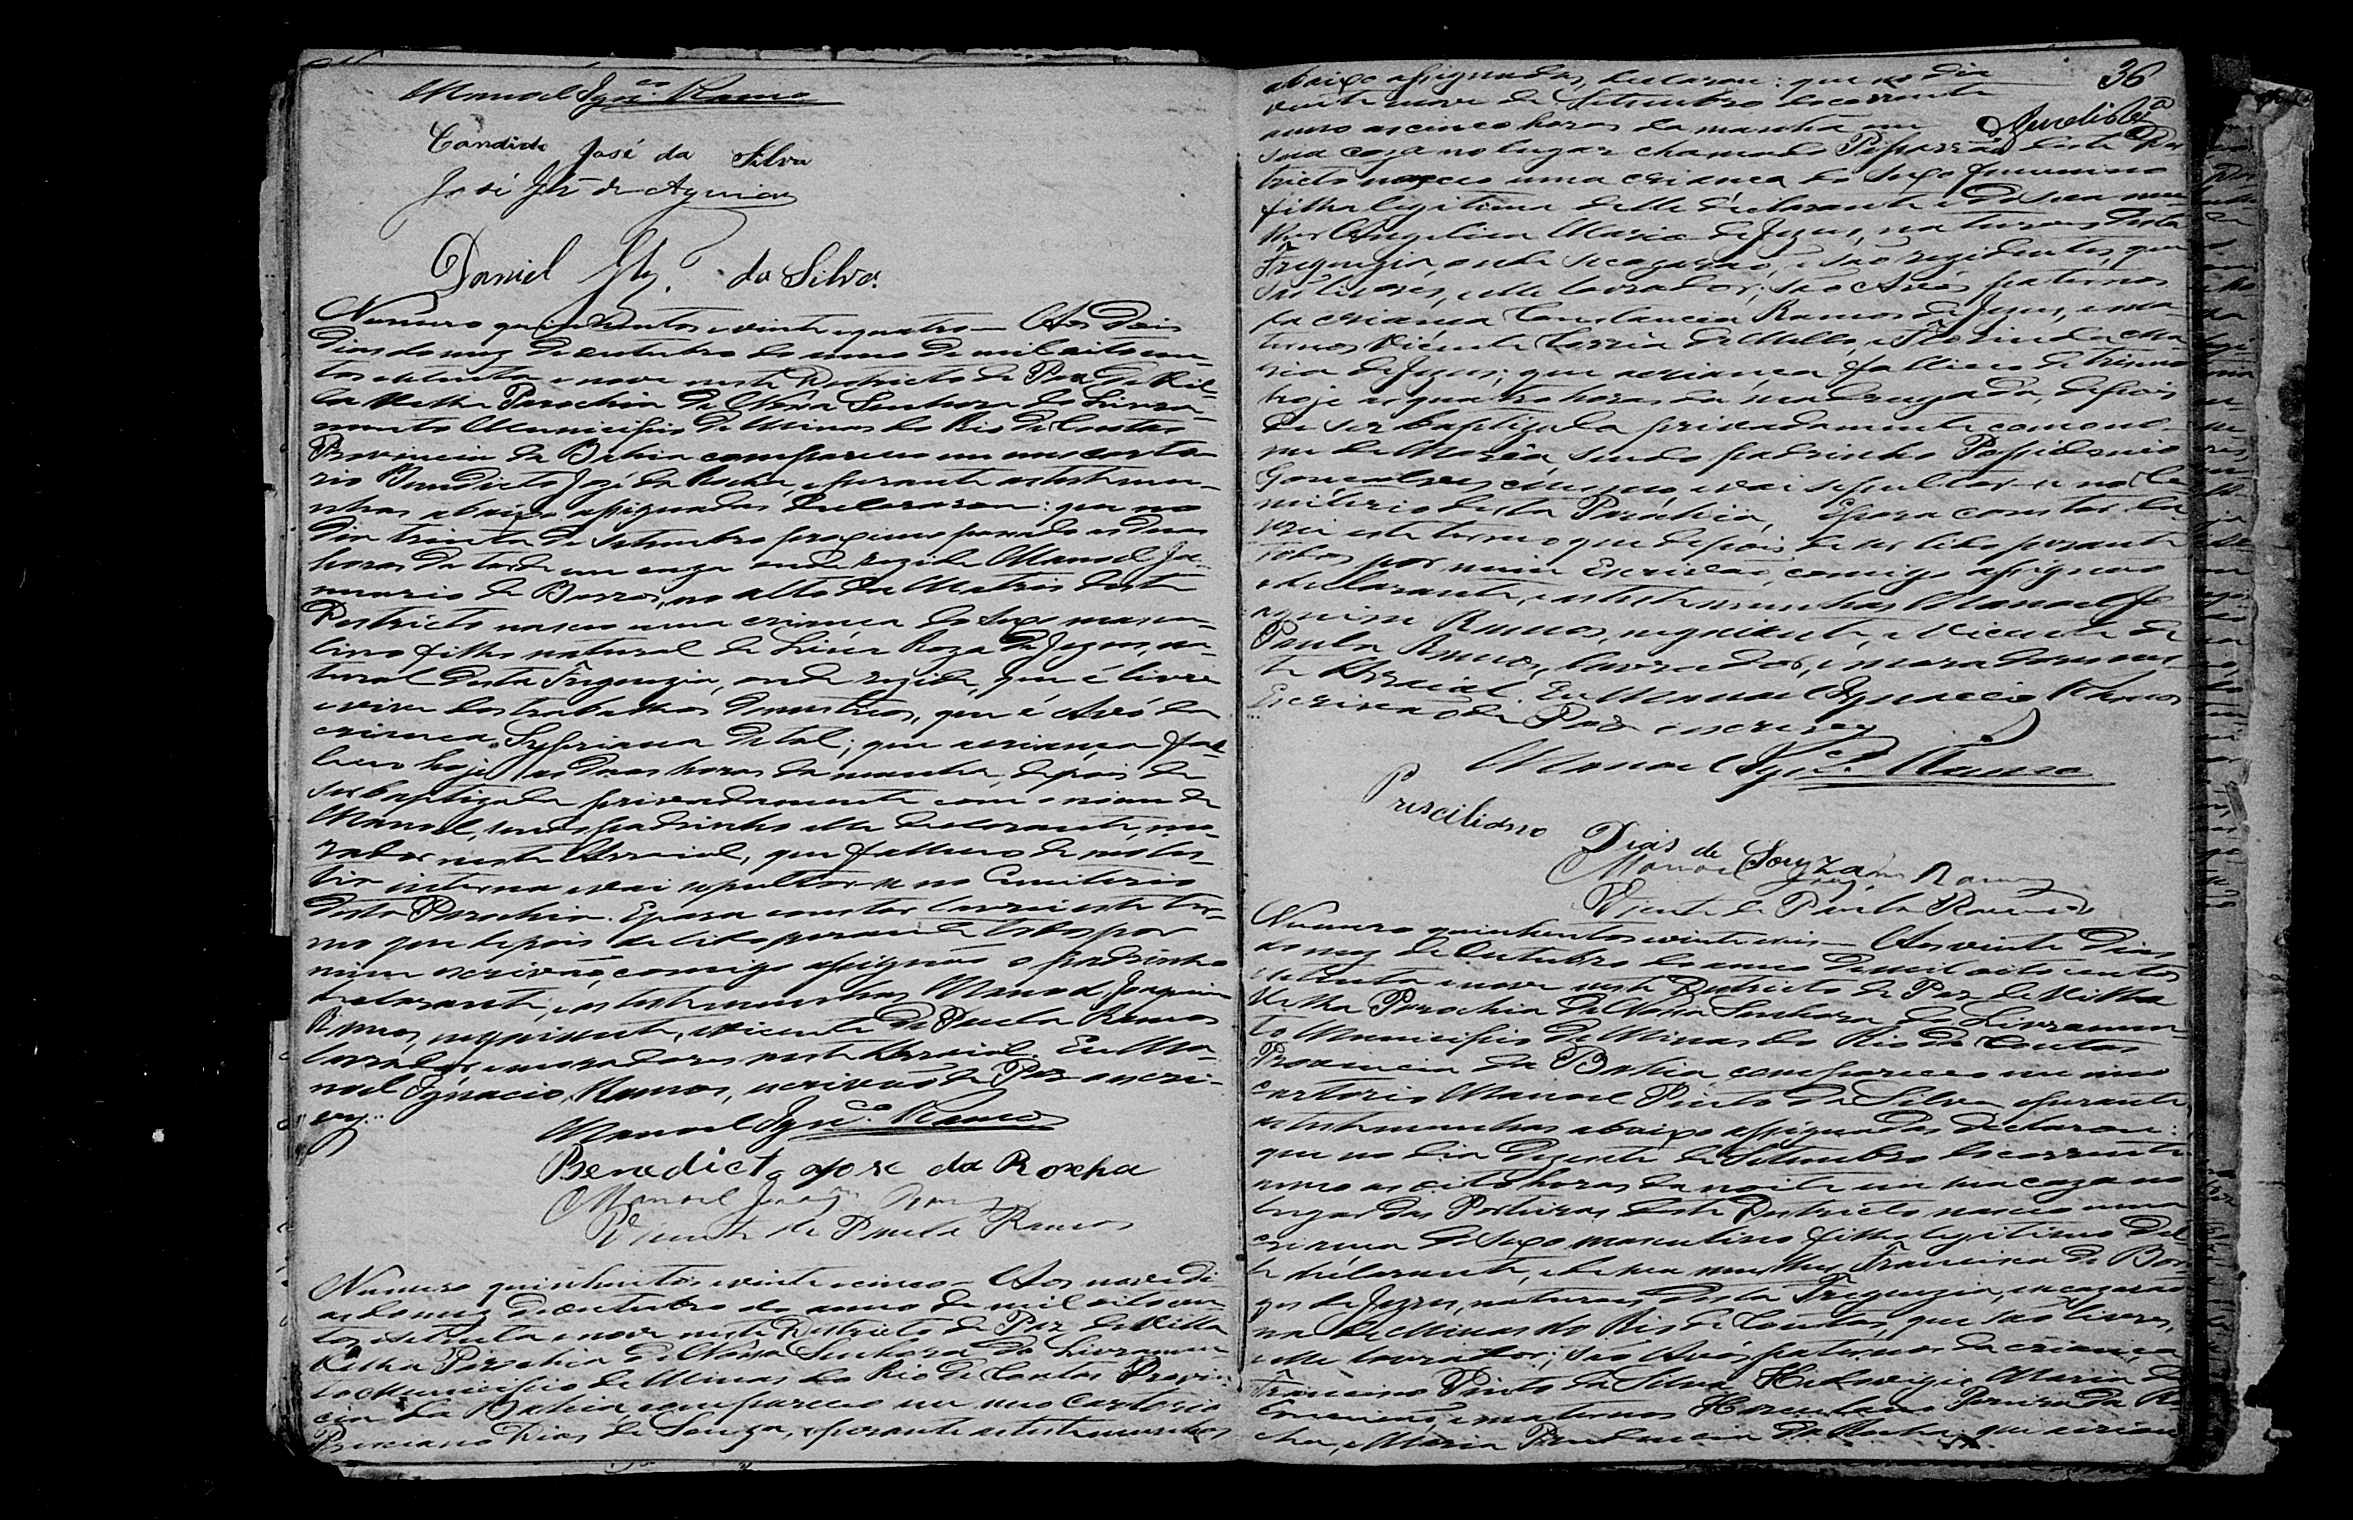 Manoel Ign.co Ramos
Candido José da Silva
José de Aguiar
Daniel da Silva.
Numero quinhentos e vinte e quatro — Aos dois
dias do mez de outubro do anno de mil oitocen-
tos e setenta e nove neste Destricto de Paz de Vil-
la Velha Parochia de Nossa Senhora do Livra-
mento Municipio de Minas do Rio de Contas
Provincia da Bahia compareceu em meu carto-
rio Benedicto José da Rocha, e perante as testemu-
nhas abaixo assignadas declarou: que no
dia trinta de Setembro proximo passado as duas
horas da tarde em caza onde rezide Manoel Ja-
nuario de Barros, no alto da Matris deste
Destricto nasceu uma criança do sexo mascu-
lino filho natural de Roza de Jezus, na-
tural desta Freguezia, onde rezide, que é livre
e vive dos trabalhos domesticos, que é Avó da
criança Sypriana de tal; que a criança fal-
leceu hoje as duas horas da manhã, depois de
ser baptizada privadamente com o nome de
Manoel, sendo padrinho elle declarante, mo-
rador neste Arraial, que falleceu de moles-
tia interna e vai sepultar-se no Cemiterio
desta Parochia. E para constar lavrei este ter-
mo que depois de lido perante todos por
mim escrivão, comigo assignão o padrinho
declarante, e as testemunhas Manoel Joaquim
Ramos, negociante, e Vicente de Paula Ramos
lavrador, e moradores neste Arraial. Eu Ma-
noel Ignacio Ramos, escrivão de Paz o escre-
vy.
Manoel Ign.co Ramos
Benedicto Jose da Rocha
Manoel Joaq.m Ramos
Vicente de Paula Ramos
Numero quinhentos e vinte e cinco — Aos nove di-
as do mez de outubro do anno de mil oitocen-
tos e setenta e nove neste Destricto de Paz de Villa
Velha Parochia de Nossa Senhora do Livramen-
to Municipio de Minas do Rio de Contas Provin-
cia da Bahia compareceu em meu Cartorio
Dias de Souza, e perante as testemunhas
36
abaixo assignadas, declarou: que no dia
vinte nove de Setembro do corrente
anno as cinco horas da manhã em
sua caza no lugar chamado deste Des-
tricto nasceu uma criança do sexo femenino
filha legitima delle declarante e de sua mu-
lher Angelica Maria de Jezus, naturaes desta
Freguezia, onde se cazarão, e são rezidentes, que
são livres, e elle lavrador; são Avós paternos
da criança Constancia Ramos de Jezus, e ma-
ternos Vicente Corrêa de Mello, e Florinda Ma-
ria de Jezus; que a criança falleceu de
hoje as quatro horas da madrugada, depois
de ser baptizada privadamente com o no-
me de Maria, sendo padrinho
Gonçalves e vai sepultar-se no Ce-
miterio desta Parochia, E para constar la-
vrei este termo que depois de ser lido perante
todos por mim Escrivão, comigo assignão
o declarante, e as testemunhas Manoel Jo-
aquim Ramos, negociante, e Vicente de
Paula Ramos, lavrador, e moradores nes-
te Arraial. Eu Manoel Ignacio Ramos
Escrivão de Paz o escrevy
Manoel Ign.co Ramos
Prisciliano Dias de Souza
Manoel Joaq.m Ramos
Vicente de Paula Ramos
Numero quinhentos e vinte e seis — Aos vinte dias
do mez de Outubro do anno de mil oito centos
e setenta e nove neste Destricto de Paz de Villa
Velha Parochia de Nossa Senhora do Livramen-
to Municipio de Minas do Rio de Contas
Provincia da Bahia, compareceu em meu
cartorio Manoel Pinto da Silva e perante
as testemunhas abaixo assignadas declarou:
que no dia de Setembro do corrente
anno as oito horas da noite em sua caza no
lugar das Porteiras deste Destricto nasceu uma
criança do sexo masculino filho legitimo del-
le declarante, e de sua mulher Francisca de Bor-
ges de Jezus, naturaes desta Freguezia, e se cazarão
na de Minas do Rio de Contas, que são livres,
e elle lavrador; são Avós paternos da criança
Francisco Pinto da Silva, Hedwirges Maria da
Conceição, e maternos Herculano Pereira da Ro-
cha, e Maria Prudencia da Rocha; que a crian-